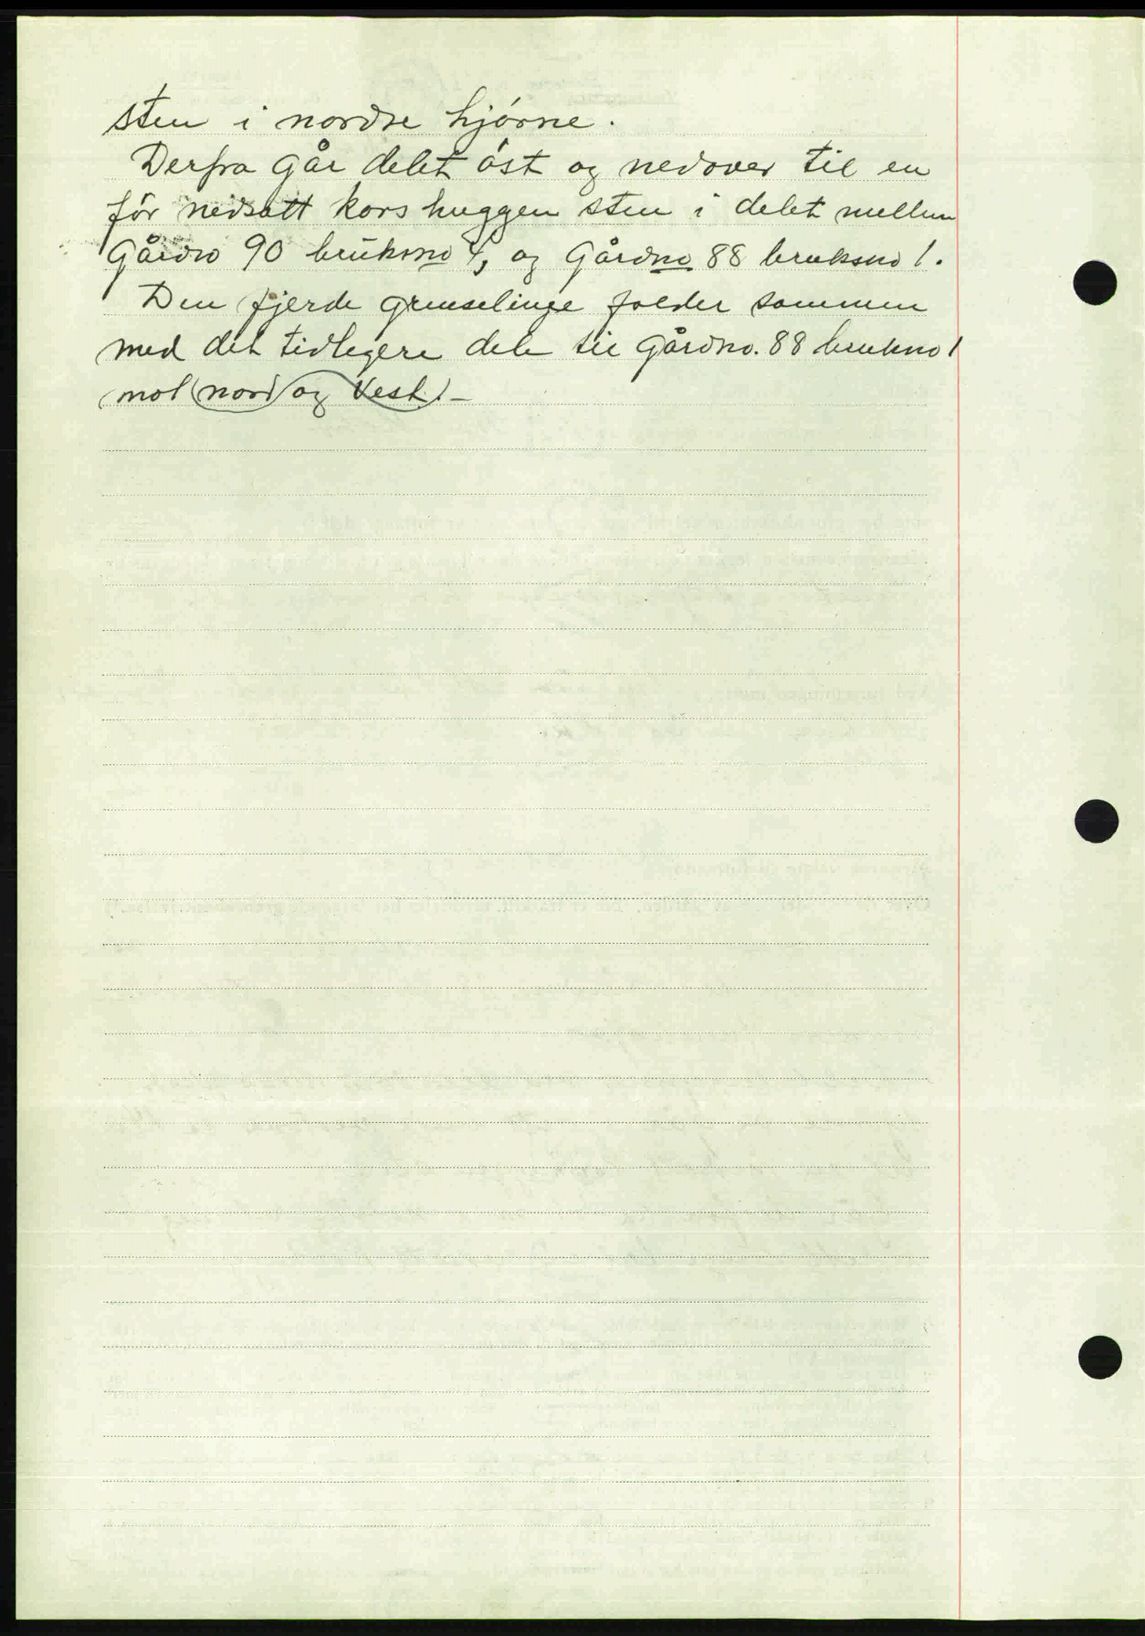 sten i nordre hjörne.
Derfra går delet öst og nedover til en
för nedsatt kors huggen sten i delet mellem
Gårdno 90 bruksno 4, og Gårdno 88 bruksno 1.
Den fjerde grenselinje folder sammen
med det tidligere dele til gårdno. 88 bruksno 1
mot nord og Vest.-